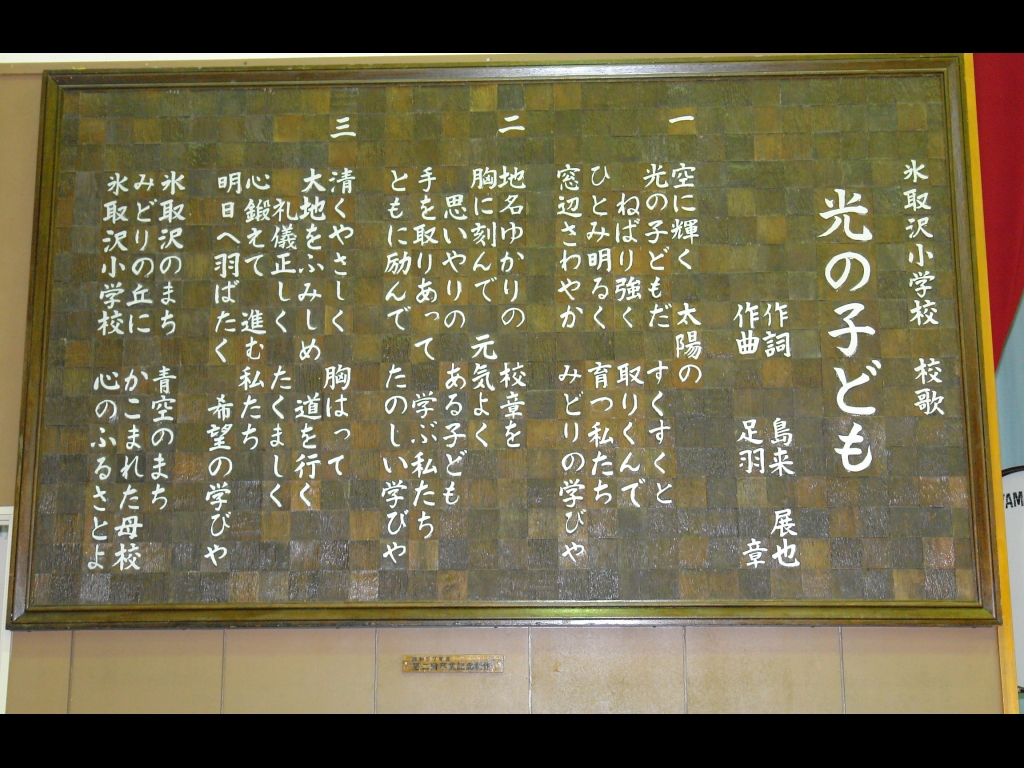 氷取沢小学校　校歌
光の子ども
作詞　鳥来　展也
作曲　足羽　章
一
空に輝く　太陽の
光の子どもだ　すくすくと
ねばり強く　取りくんで
ひとみ明るく　育つ私たち
窓辺さわやか　みどりの学びや
二
地名ゆかりの　校章を
胸に刻んで　元気よく
思いやりの　ある子ども
手を取りあって　学ぶ私たち
ともに励んで　たのしい学びや
三
清くやさしく　胸はって
大地をふみしめ　道を行く
礼儀正しく　たくましく
心鍛えて　進む私たち
明日へ羽ばたく　希望の学びや
氷取沢のまち　青空のまち
みどりの丘に　かこまれた母校
氷取沢小学校　心のふるさとよ